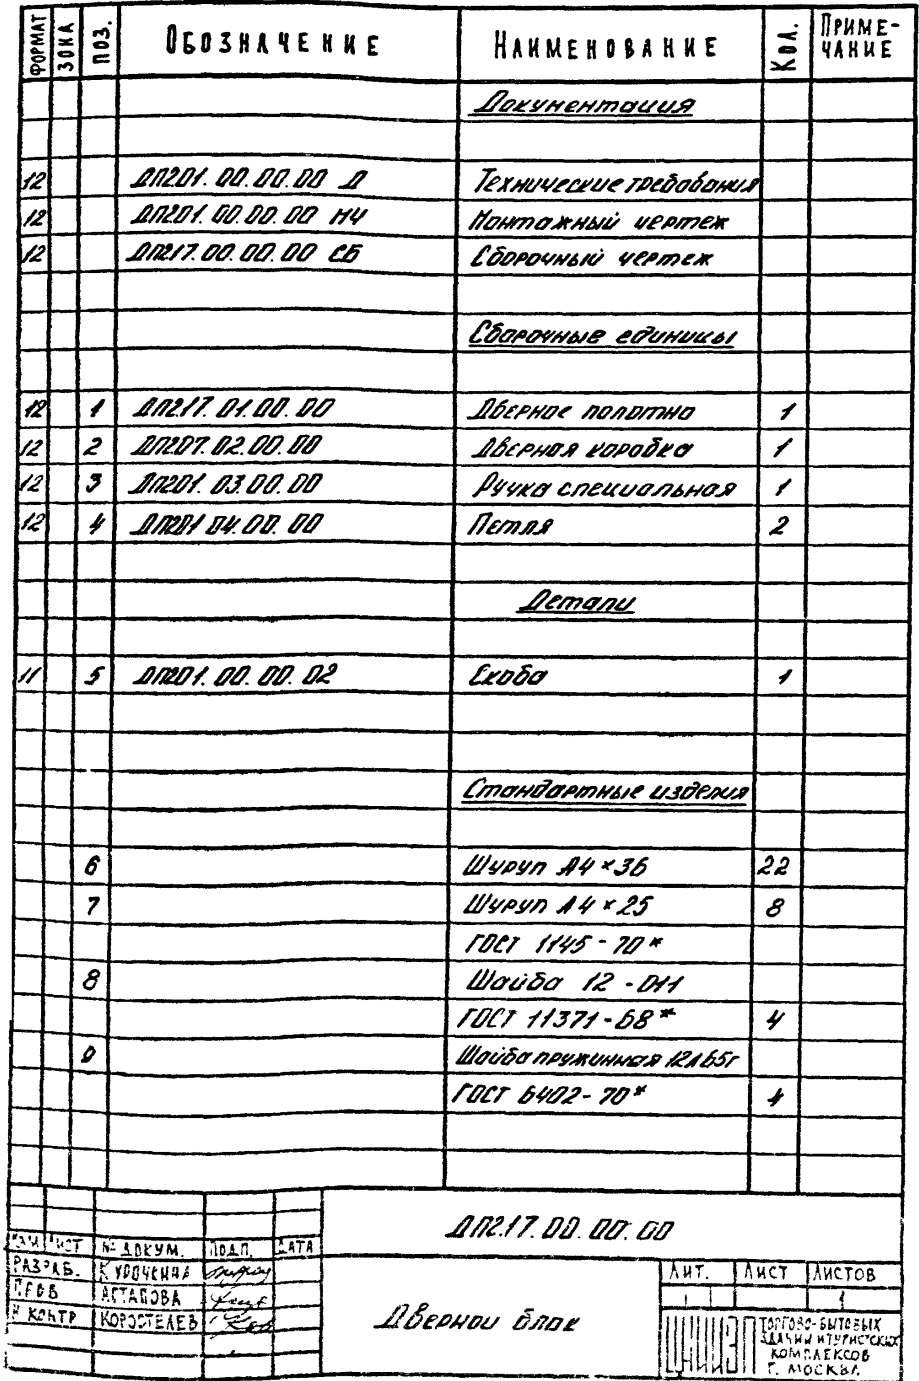 ФОРМАТ ЗОНА ПОЗ. ОБОЗНАЧЕНИЕ НАИМЕНОВАНИЕ КОЛ. ПРИМЕ-
ЧАНИЕ
Документация
12 ДП201.00.00.00 Д Технические требования
12 ДП201.00.00.00 МЧ Монтажный чертеж
12 ДП217.00.00.00 СБ Сборочный чертеж
Сборочные единицы
12 1 ДП217.01.00.00 Дверное полотно 1
12 2 ДП207.02.00.00 Дверная коробка 1
12 3 ДП201.03.00.00 Ручка специальная 1
12 4 ДП201 04.00.00 Петля 2
Детали
11 5 ДП201.00.00.02 Скоба 1
Стандартные изделия
6 Шуруп А4×36 22
7 Шуруп А4×25 8
ГОСТ 1145-70*
8 Шайба 12-011
ГОСТ 11371-68* 4
9 Шайба пружинная 12Л65г
ГОСТ 6402-70* 4
ДП217.00.00.00
ИЗМ ЛИСТ № ДОКУМ. ПОДП. ДАТА
РАЗРАБ. КУРОЧКИНА
ПРОВ АСТАПОВА
Н КОНТР КОРОСТЕЛЕВ
Дверной блок
ЛИТ. ЛИСТ ЛИСТОВ
1
ЦНИИЭП ТОРГОВО-БЫТОВЫХ
ЗДАНИЙ И ТУРИСТСКИХ
КОМПЛЕКСОВ
Г. МОСКВА